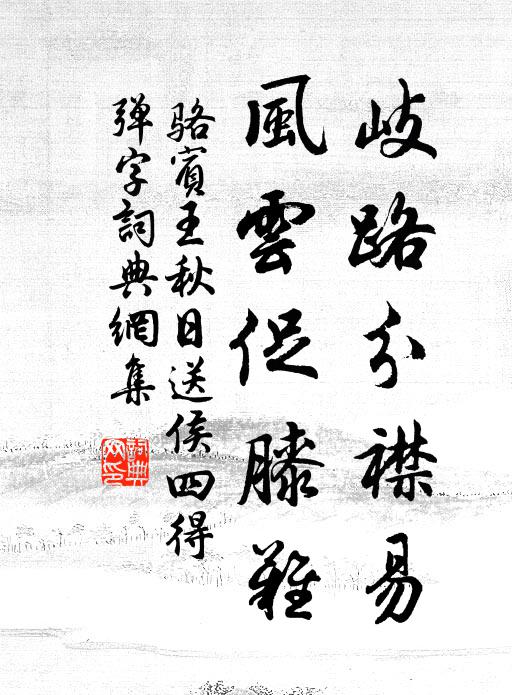 歧路分襟易
風雲促膝難
骆賓王秋日送侯四得
弹字詞典網集
詞典
网印